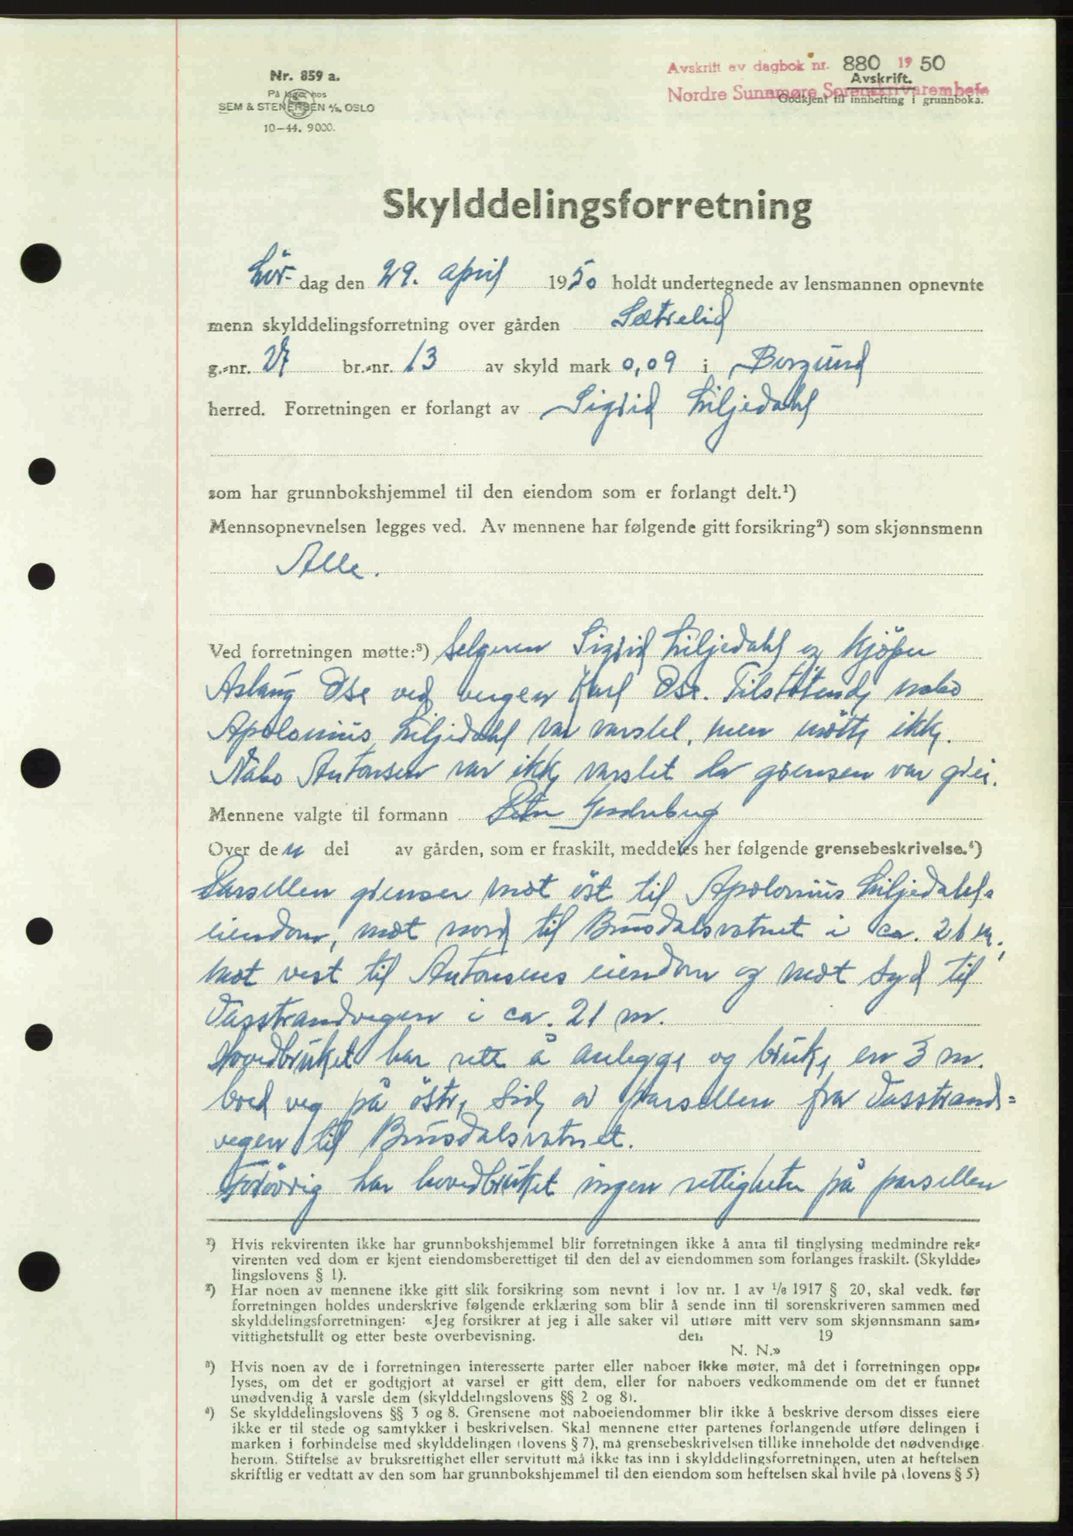 Nr. 859 a.
På lager hos
SEM & STENERSEN A/S, OSLO
10—44. 9000.
Avskrift av dagbok nr. 880 1950
Avskrift.
Nordre Sunnmøre Sorenskrivarembete
Godkjent til innhefting i grunnboka.
Skylddelingsforretning
Lör- dag den 29. april 1950 holdt undertegnede av lensmannen opnevnte
menn skylddelingsforretning over gården Sætrelid
g.-nr. 27 br.-nr. 13 av skyld mark 0,09 i Borgund
herred. Forretningen er forlangt av Sigrid Liljedahl
som har grunnbokshjemmel til den eiendom som er forlangt delt.¹)
Mennsopnevnelsen legges ved. Av mennene har følgende gitt forsikring²) som skjønnsmenn
Alle.
Ved forretningen møtte:³) Selgeren Sigrid Liljedahl og kjöper
Aslaug Ose ved vergen Karl Ose. Tilstötende nabo
Apolonius Liljedahl var varslet, men møtte ikke.
Nabo Antonsen var ikke varslet da grensen var grei.
Mennene valgte til formann Peter
Over den del av gården, som er fraskilt, meddeles her følgende grensebeskrivelse.⁴)
Parsellen grenser mot öst til Apolonius Liljedahls
eiendom, mot nord til Brusdalsvatnet i ca. 21 m.,
mot vest til Antonsens eiendom og mot syd til
Vasstrandvegen i ca. 21 m.
Hovedbruket har rett å anlegge og bruke en 3 m.
bred veg på östre side av parsellen fra Vasstrand=
vegen til Brusdalsvatnet.
Forövrig har hovedbruket ingen rettigheter på parsellen
¹) Hvis rekvirenten ikke har grunnbokshjemmel blir forretningen ikke å anta til tinglysing medmindre rek-
virenten ved dom er kjent eiendomsberettiget til den del av eiendommen som forlanges fraskilt. (Skyldde-
lingslovens § 1).
²) Har noen av mennene ikke gitt slik forsikring som nevnt i lov nr. 1 av 1/6 1917 § 20, skal vedk. før
forretningen holdes underskrive følgende erklæring som blir å sende inn til sorenskriveren sammen med
skylddelingsforretningen: «Jeg forsikrer at jeg i alle saker vil utføre mitt verv som skjønnsmann sam-
vittighetsfullt og etter beste overbevisning. den 19
N. N.»
³) Hvis noen av de i forretningen interesserte parter eller naboer ikke møter, må det i forretningen opp-
lyses, om det er godtgjort at varsel er gitt dem, eller for naboers vedkommende om det er funnet
unødvendig å varsle dem (skylddelingslovens §§ 2 og 8).
⁴) Se skylddelingslovens §§ 3 og 8. Grensene mot naboeiendommer blir ikke å beskrive dersom disses eiere
ikke er til stede og samtykker i beskrivelsen. Skal mennene etter partenes forlangende utføre delingen i
marken i forbindelse med skylddelingen (lovens § 7), må grensebeskrivelsen tillike inneholde det nødvendige
herom. Stiftelse av bruksrettighet eller servitutt må ikke tas inn i skylddelingsforretningen, uten at heftelsen
skriftlig er vedtatt av den som har grunnbokshjemmel til den eiendom som heftelsen skal hvile på (lovens § 5)